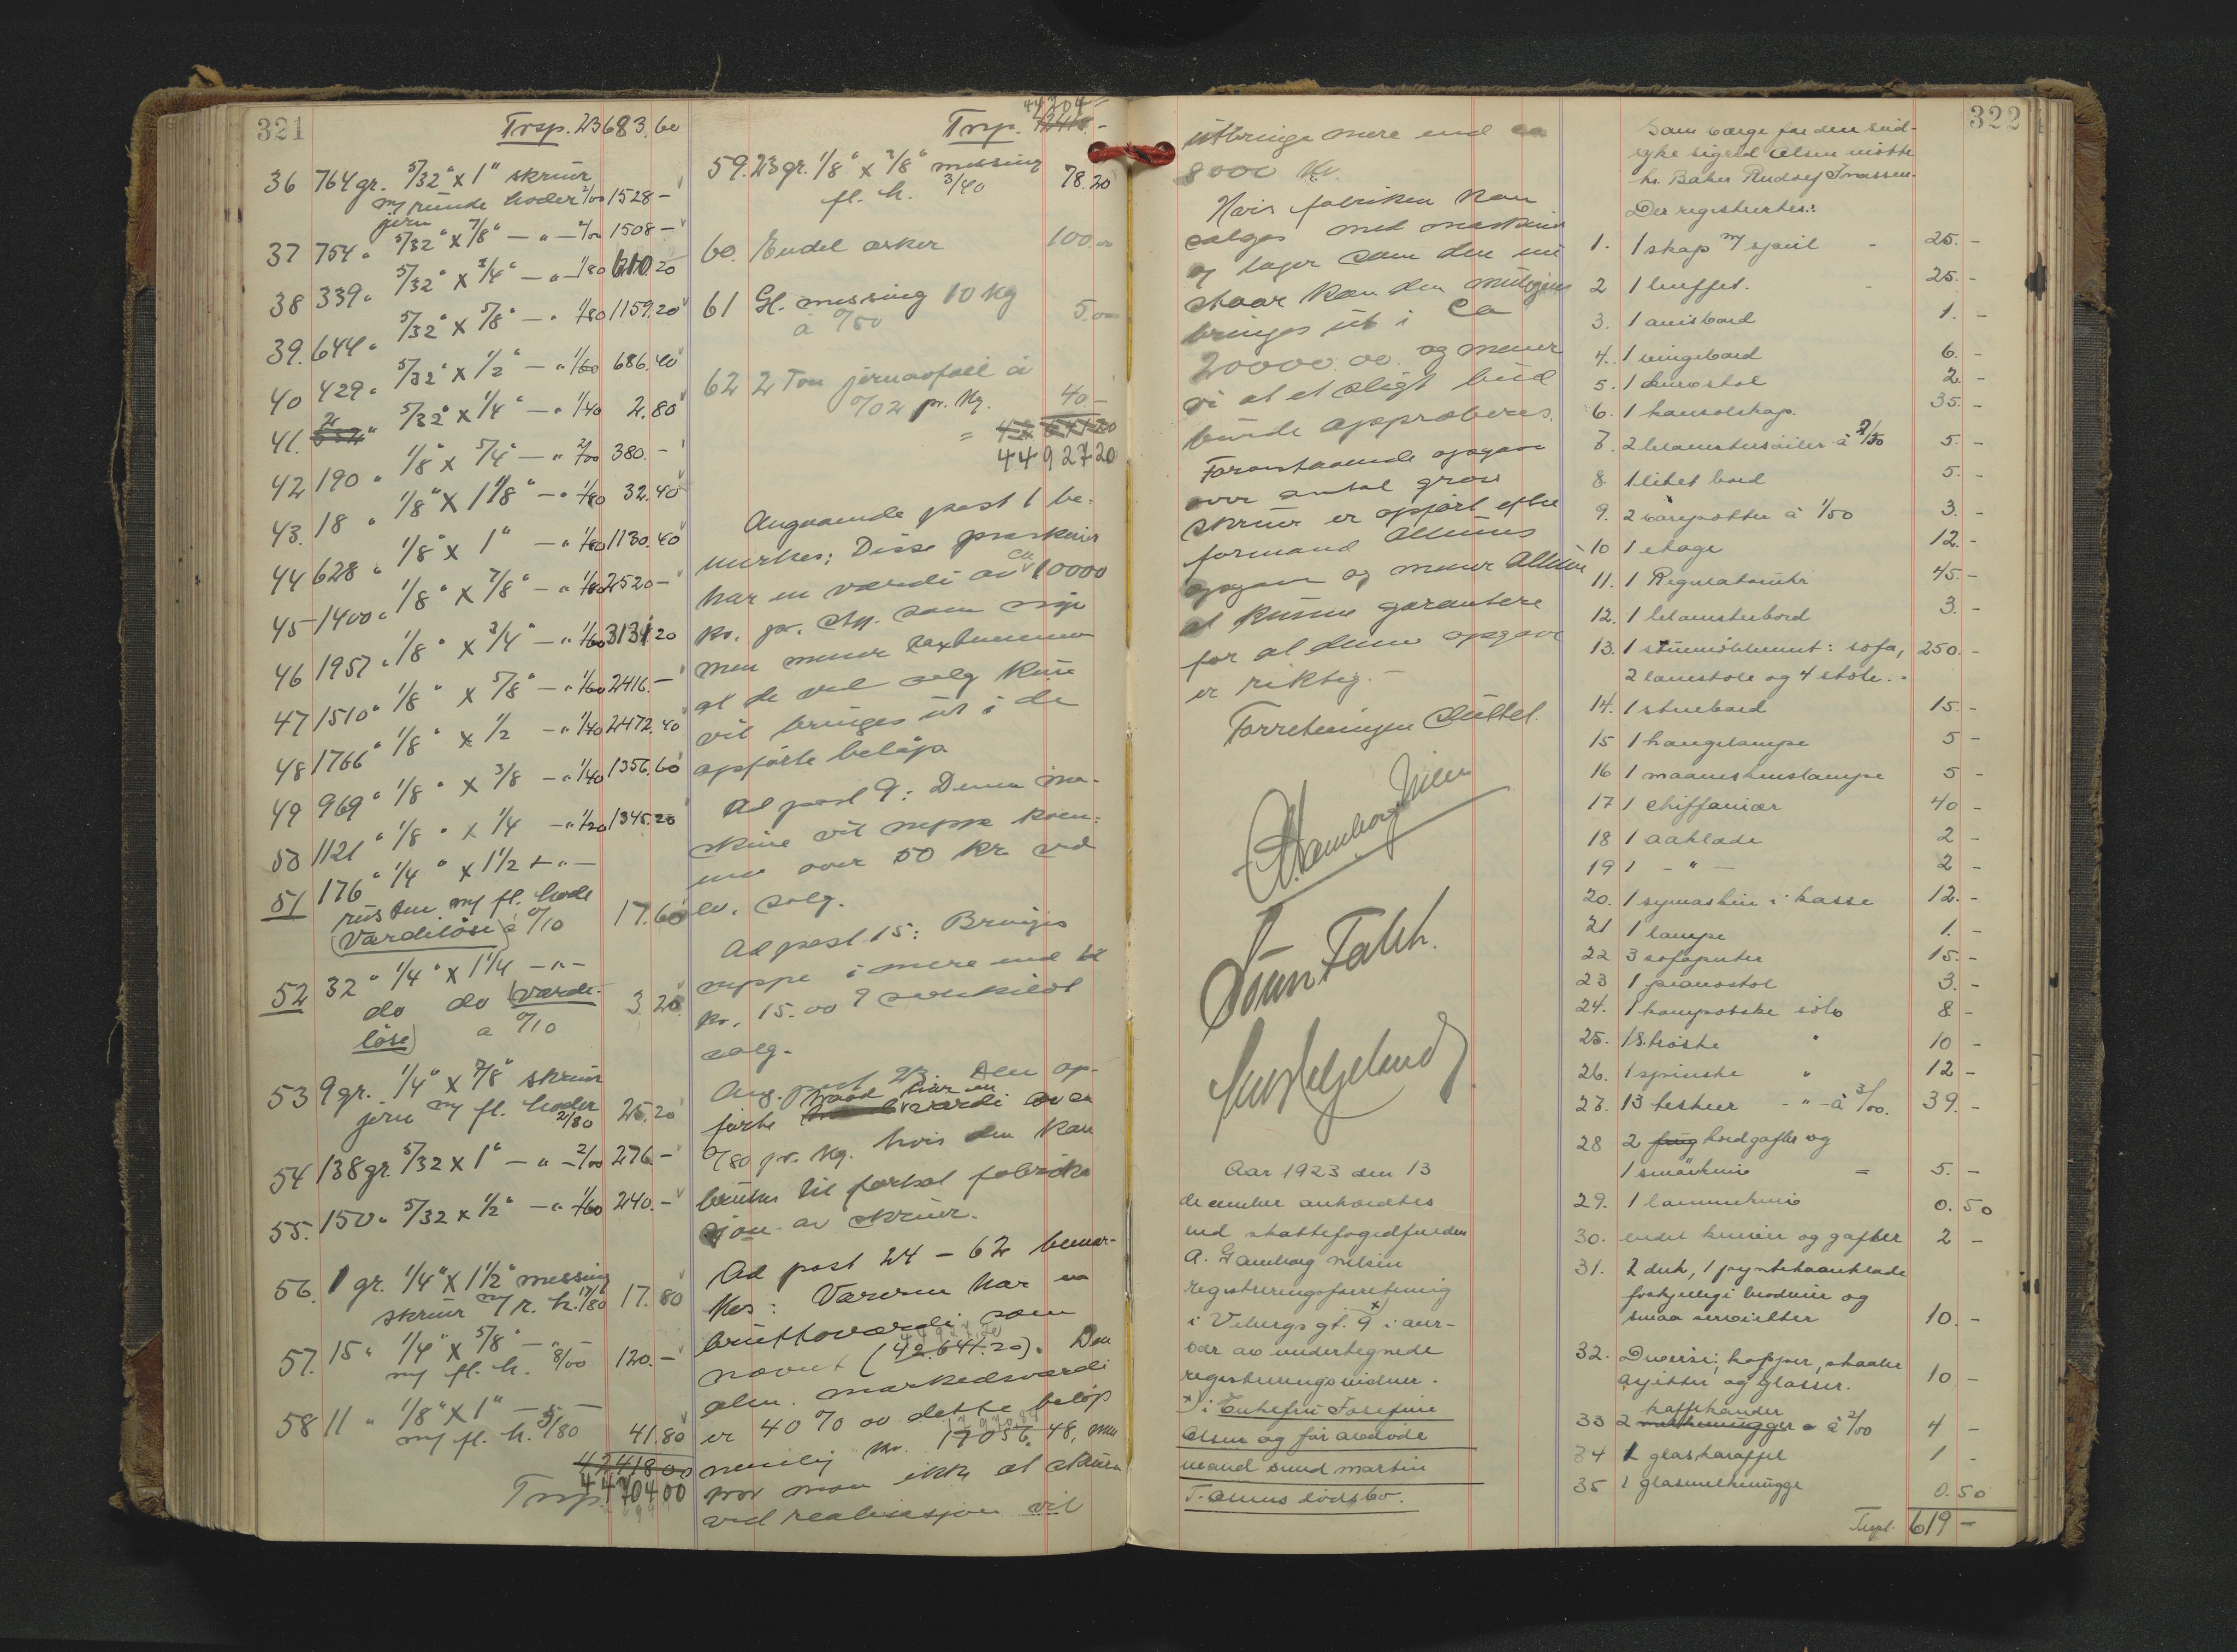 321
Trsp. 23683.60
36 764 gr. 5/32" x 1" skruer
m/ runde hoder 2/00 1528 -
jern
37 754 " 5/32" x 7/8" - " - 2/00 1508 -
38 339 " 5/32" x 3/4" - " - 1/80 610.20
39. 644 " 5/32" x 5/8" - " 1/80 1159.20
40 429 " 5/32" x 1/2" - " 1/60 686.40
41. 2 " 5/32" x 1/4" - " 1/40 2.80
42 190 " 1/8" x 5/4" - " 2/00 380. -
43. 18 " 1/8" x 1 1/8" - " 1/80 32.40
44 628 " 1/8" x 1" - " 1/80 1130.40
45 1400 " 1/8" x 7/8" - " 1/80 2520 -
46 1957 " 1/8" x 3/4" - " 1/60 3131.20
47 1510 " 1/8" x 5/8" - " 1/60 2416. -
48 1766 " 1/8" x 1/2 - " 1/40 2472.40
49 969 " 1/8" x 3/8 - " 1/40 1356.60
50 1121 " 1/8" x 1/4 - " 1/20 1345.20
51 176 " 1/4" x 1 1/2 - " -
rusten m/ fl. hode
(Værdiløse) à 0/10 17.60
52 32 " 1/4" x 1 1/4 - " -
do do (værdi-
løse) a 0/10 3.20
53 9 gr. 1/4" x 7/8" skruer
jern m/ fl. hoder
2/80 25.20
54 138 gr. 5/32 x 1" - " - 2/00 276. -
55. 150 " 5/32 x 1/2" - " 1/60 240. -
56. 1 gr. 1/4" x 1 1/2" messing
skruer m/ r. h. 17/80 17.80
57. 15 " 1/4" x 5/8" - " -
m/ fl. h. 8/00 120. -
58 11 " 1/8" x 1" - " -
m/ fl. h. 3/80 41.80
42418 00
Trsp. 44704 00
44704 -
Trsp. 42418. -
59. 23 gr. 1/8" x 7/8" messing
fl. h. 3/40 78.20
60. Endel æsker 100.00
61 Gl. messing 10 kg
à 0/50 5.00
62 2 Ton jernavfall à
0/02 pr. kg. 40 -
= 42 641 20
44 927 20
Angaaende post 1 be-
merkes: Disse maskiner
har en værdi av ca 10000
kr. pr. stk. som nye
men mener taxtmennene
at de ved salg kun
vil bringes ut i de
opførte beløp
Ad post 9: Denne ma-
skine vil neppe kom-
me over 50 kr. ved
ev. salg.
Ad post 15: Bringes
neppe i mere end
kr. 15.00 ved
salg.
Ang. post 23. Den op-
førte traad har en værdi av ca
0/80 pr. kg. hvis den kan
brukes til fortsat fabrika-
sjon av skruer.
Ad post 24 - 62 bemær-
kes: Varerne har en
bruttoværdi som
nævnt (42.641.20). Den
44927.20
alm. markedsværdi
er 40 % av dette beløp
nemlig kr. 17056.48, men
17970.88
tror man ikke at skruerne
ved realisasjon vil
utbringe mere end ca
8000 kr.
Hvis fabriken kan
sælges med maskiner
og lager som den nu
staar kan den muligens
bringes ut i ca
20000.00 og mener
vi at et sligt bud
burde approberes.
Foranstaaende opgave
over antal gross
skruer er opført efter
formand Allums
opgave og mener Allum
at kunne garantere
for at denne opgave
er riktig. -
Forretningen sluttet.
A. Gamborg Nilsen
Aar 1923 den 13
december avholdtes
ved skattefogedfuldm.
A. Gamborg Nilsen
registreringsforretning
i Vibergs gt. 9 x) i nær-
vær av undertegnede
registreringsvidner.
x) i Enkefru Josefine
Olsen og før avdøde
mand Martin
T. Olsens dødsbo.
322
Som værge for den sind-
syke Sigrid Olsen møtte
hr. Baker Rudolf
Der registrertes:
1. 1 skap m/ speil - 25. -
2 1 buffet. - 25. -
3. 1 anisbord 1. -
4. 1 vingebord 6. -
5. 1 stol 2. -
6. 1 konsolskap. 35. -
7. 2 blomstersøiler à 2/50 5. -
8. 1 litet bord 5. -
9. 2 varepotter à 1/50 3. -
10 1 etage 12. -
11. 1 Regulatoruhr 45. -
12. 1 blomsterbord 3. -
13. 1 stuemøblement: sofa, 250. -
2 lænestole og 4 stole. -
14. 1 stuebord 15. -
15 1 hængelampe 5 -
16 1 maaneskinslampe 5 -
17 1 chiffonier 40 -
18 1 aaklæde 2 -
19 1 - " - 2 -
20. 1 symaskin i kasse 12. -
21 1 lampe 1. -
22 3 sofaputer 15. -
23 1 pianostol 3. -
24. 1 kompotske sølv 8 -
25. 1 " 10 -
26. 1 spiseske " 12 -
27. 13 teskeer - " - à 3/00. 39. -
28 2 bordgafler og
1 smørkniv = 5. -
29. 1 lommekniv 0.50
30. endel kniver og gafler 2 -
31. 2 duk, 1 pyntehaandklæde
forskjellige broderier og
smaa servietter 10. -
32. Diverse: kopper, skaaler
og glasser. 10 -
33 2 kaffekander à 2/00 4 -
34 1 glaskaraffel 1 -
35 1 glasmelkmugge 0.50
Trspt. 619 -